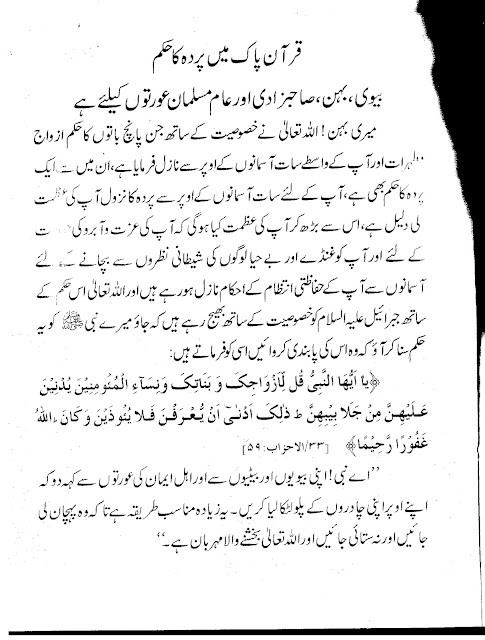 قرآن پاک میں پردہ کا حکم
بیوی، بہن، صاحبزادی اور عام مسلمان عورتوں کیلئے ہے
میری بہن! اللہ تعالیٰ نے خصوصیت کے ساتھ جن پانچ باتوں کا حکم ازواج
اور آپ کے واسطے سات آسمانوں کے اوپر سے نازل فرمایا ہے، ان میں سے ایک
پردہ کا حکم بھی ہے، آپ کے لئے سات آسمانوں کے اوپر سے پردہ کا نزول آپ کی عظمت
کی دلیل ہے، اس سے بڑھ کر آپ کی عظمت کیا ہوگی کہ آپ کی عزت و آبرو کی
کے لئے اور آپ کو غنڈے اور بے حیا لوگوں کی شیطانی نظروں سے بچانے کے لئے
آسمانوں سے آپ کے حفاظتی انتظام کے احکام نازل ہو رہے ہیں اور اللہ تعالیٰ اس حکم کے
ساتھ جبرائیل علیہ السلام کو خصوصیت کے ساتھ بھیج رہے ہیں کہ جاؤ میرے نبی ﷺ کو یہ
حکم سنا کر آؤ کہ وہ اس کی پابندی کروائیں اسی کو فرماتے ہیں:
﴿یا اَیُّهَا النَّبِیُّ قُل لِّاَزْوَاجِکَ وَ بَنَاتِکَ وَنِسَآءِ الْمُئُومِنِیْنَ یُدْنِیْنَ
عَلَیْهِنَّ مِنْ جَلَا بِیْبِهِنَّ ط ذٰلِکَ اَدْنٰیٓ اَنْ یُّعْرَفْنَ فَلا یُئُوذَیْنَ وَ کَانَ اللهُ
غَفُوْرًا رَّحِیْمًا﴾ [۳۳/الاحزاب: ۵۹]
’’اے نبی! اپنی بیویوں اور بیٹیوں سے اور اہل ایمان کی عورتوں سے کہہ دو کہ
اپنے اوپر اپنی چادروں کے پلو لٹکا لیا کریں۔ یہ زیادہ مناسب طریقہ ہے تاکہ وہ پہچان لی
جائیں اور نہ ستائی جائیں اور اللہ تعالیٰ بخشنے والا مہربان ہے۔‘‘